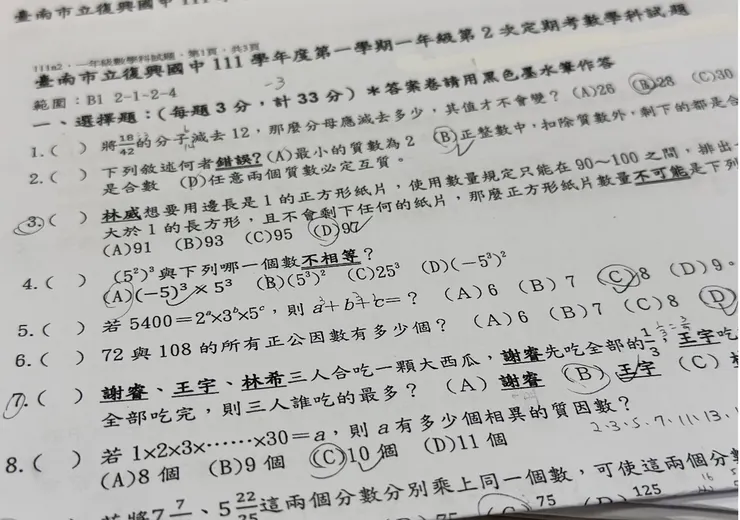 臺南市立復興國中 111
111a2．一年級數學科試題．第1頁．共3頁
臺南市立復興國中 111 學年度第一學期一年級第 2 次定期考數學科試題
範圍：B1 2-1~2-4
-3
一、選擇題：(每題 3 分，計 33 分) ＊答案卷請用黑色墨水筆作答
1. ( ) 將18/42的分子減去 12，那麼分母應減去多少，其值才不會變？ (A)26 (B)28 (C)30
2. ( ) 下列敘述何者錯誤? (A)最小的質數為 2 (B)正整數中，扣除質數外，剩下的都是合
是合數 (D)任意兩個質數必定互質。
3. ( ) 林威想要用邊長是 1 的正方形紙片，使用數量規定只能在 90～100 之間，排出一
大於 1 的長方形，且不會剩下任何的紙片，那麼正方形紙片數量不可能是下列
(A)91 (B)93 (C)95 (D)97
4. ( ) (5²)³與下列哪一個數不相等？
(A)(−5)³×5³ (B)(5³)² (C)25³ (D)(−5³)²
5. ( ) 若 5400＝2ᵃ×3ᵇ×5ᶜ，則 a＋b＋c＝？ (A) 6 (B) 7 (C) 8 (D) 9。
6. ( ) 72 與 108 的所有正公因數有多少個？ (A) 6 (B) 7 (C) 8 (D)
7. ( ) 謝睿、王宇、林希三人合吃一顆大西瓜，謝睿先吃全部的1/3，王宇吃
全部吃完，則三人誰吃的最多？ (A) 謝睿 (B) 王宇 (C)
8. ( ) 若 1×2×3×⋯⋯×30＝a，則 a 有多少個相異的質因數？
2.3.5.7.11.13.
(A)8 個 (B)9 個 (C)10 個 (D)11 個
若將7 7、5 22/25這兩個分數分別乘上同一個數，可使這兩個分
75 (C) 75 (D) 125